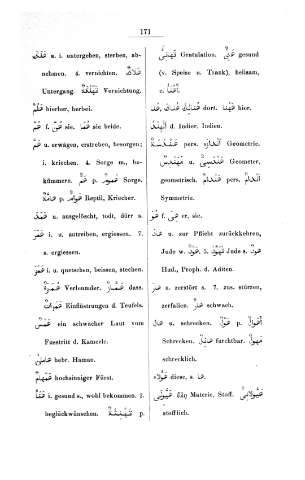 171
هلك a. i. untergehen, sterben, ab-
nehmen. 4. vernichten. هلاك
Untergang. تهلكة Vernichtung.
هلم hierher, herbei.
هم f. هن sie. هما sie beide.
هم u. erwägen, erstreben, besorgen;
i. kriechen. 4. Sorge m., be-
kümmern. هم p. هموم Sorge.
هامة p. هوام Reptil, Kriecher.
همد u. ausgelöscht, todt, dürr s.
همر i. u. antreiben, ergiessen. 7.
s. ergiessen.
همز i. u. quetschen, beissen, stechen.
همزة Verleumder. هماز dass.
همزات Einflüsterungen d. Teufels.
همس ein schwacher Laut vom
Fusstritt d. Kamele.
هامان hebr. Haman.
همام hochsinniger Fürst.
هنأ i. gesund s., wohl bekommen. 2.
beglückwünschen. تهنئة p.
تهانى Gratulation. هنئ gesund
(v. Speise u. Trank), heilsam,
s. هنأ.
هنا hier. هناك هنالك dort.
هند d. Indier. Indien.
هندسة pers. اندازه Geometrie.
مهندس u. هندسى Geometer,
geometrisch. هندام pers. اندام
Symmetrie.
هو f. هى er, sie.
هاد u. zur Pflicht zurückkehren,
Jude w. هود. 2. Jude s. هود
Hud, Proph. d. Aditen.
هار s. zerstört s. 7. zus. stürzen,
zerfallen. هار schwach.
هال u. schrecken. هول p. اهوال
Schrecken. هائل furchtbar. مهول
schrecklich.
هؤلاء diese, s. ها.
هيولى ὕλη Materie, Stoff. هيولانى
stofflich.